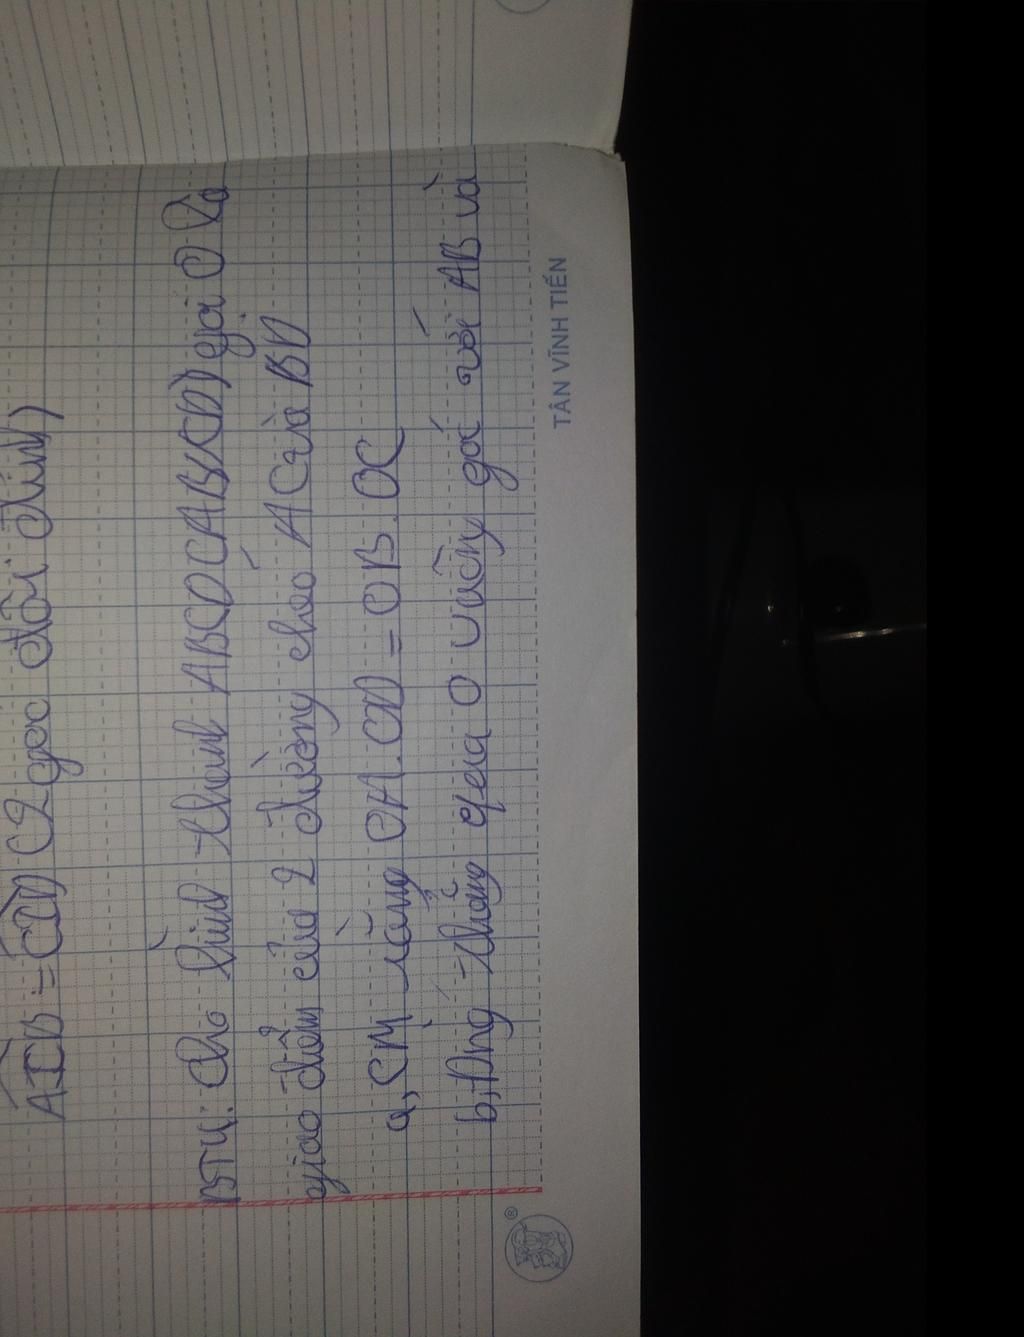 AIB = CID (2 góc đối đỉnh)
BT4: Cho hình thanh ABCD (AB//CD) gọi O là
giao điểm của 2 đường chéo AC và BD
a, CM rằng OA.OD = OB.OC
b, Đng thẳng qua O vuông góc với AB và
TÂN VĨNH TIẾN